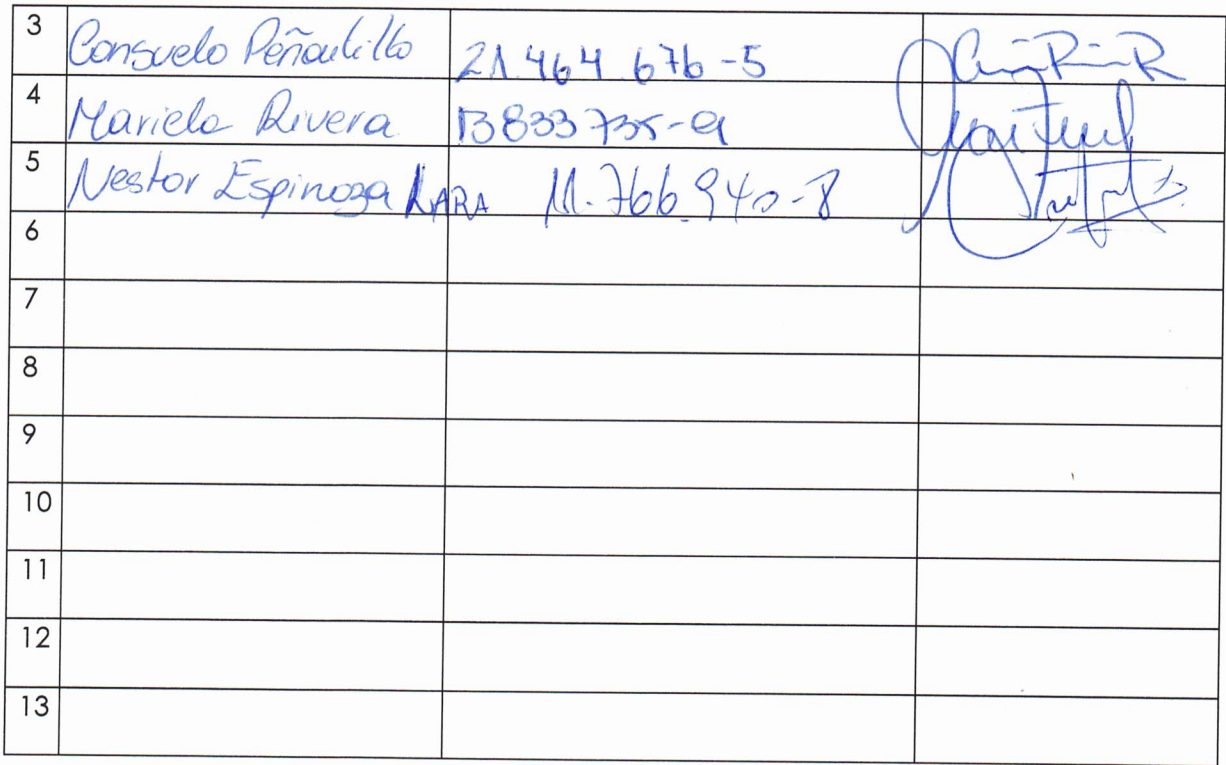 3 Consuelo Peñailillo 21.464.676-5
4 Mariela Rivera 13833735-9
5 Nestor Espinoza LARA 11.766.940-8
6
7
8
9
10
11
12
13